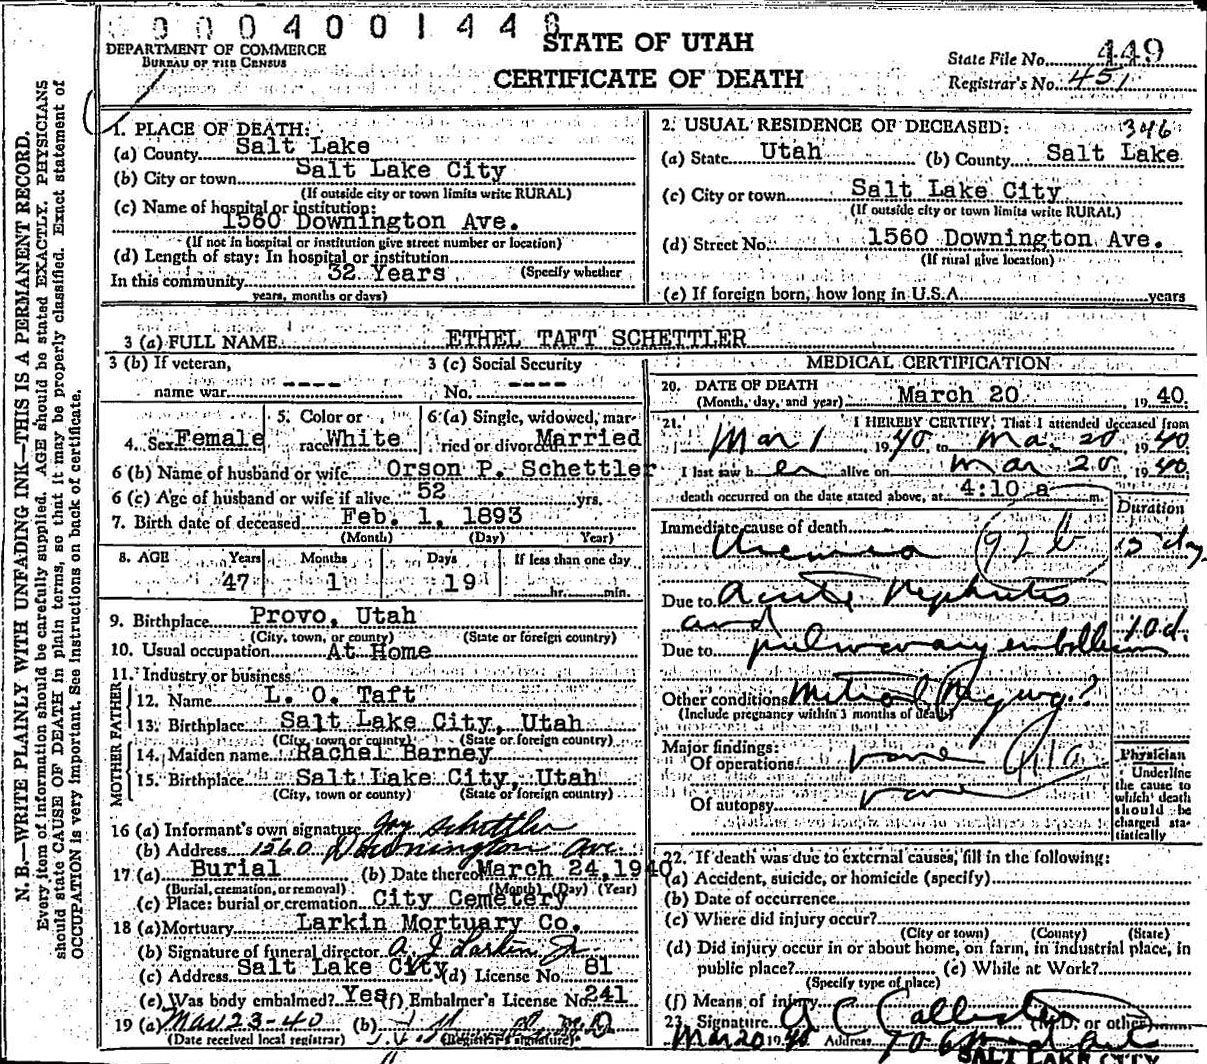 0 0 0 4 0 0 1 4 4 8
DEPARTMENT OF COMMERCE
BUREAU OF THE CENSUS
STATE OF UTAH
CERTIFICATE OF DEATH
State File No. 449
Registrar's No. 451
N. B.—WRITE PLAINLY WITH UNFADING INK—THIS IS A PERMANENT RECORD.
Every item of information should be carefully supplied. AGE should be stated EXACTLY. PHYSICIANS
should state CAUSE OF DEATH in plain terms, so that it may be properly classified. Exact statement of
OCCUPATION is very important. See instructions on back of certificate.
1. PLACE OF DEATH:
(a) County Salt Lake
(b) City or town Salt Lake City
(If outside city or town limits write RURAL)
(c) Name of hospital or institution:
1560 Downington Ave.
(If not in hospital or institution give street number or location)
(d) Length of stay: In hospital or institution
In this community 32 Years (Specify whether
years, months or days)
2. USUAL RESIDENCE OF DECEASED: 346
(a) State Utah (b) County Salt Lake
(c) City or town Salt Lake City
(If outside city or town limits write RURAL)
(d) Street No. 1560 Downington Ave.
(If rural give location)
(e) If foreign born, how long in U.S.A. years
3 (a) FULL NAME ETHEL TAFT SCHETTLER
3 (b) If veteran,
name war ----
3 (c) Social Security
No. ----
4. Sex Female
5. Color or
race White
6 (a) Single, widowed, mar-
ried or divorced Married
6 (b) Name of husband or wife Orson P. Schettler
6 (c) Age of husband or wife if alive 52 yrs.
7. Birth date of deceased Feb. 1, 1893
(Month) (Day) Year)
8. AGE Years Months Days If less than one day
47 1 19 hr. min.
9. Birthplace Provo, Utah
(City, town, or county) (State or foreign country)
10. Usual occupation At Home
11. Industry or business
FATHER
12. Name L. O. Taft
13. Birthplace Salt Lake City, Utah
(City, town or county) (State or foreign country)
MOTHER
14. Maiden name Rachel Barney
15. Birthplace Salt Lake City, Utah
(City, town or county) (State or foreign country)
16 (a) Informant's own signature Joy Schettler
(b) Address 1560 Downington Ave.
17 (a) Burial (b) Date thereof March 24, 1940
(Burial, cremation, or removal) (Month) (Day) (Year)
(c) Place: burial or cremation City Cemetery
18 (a) Mortuary Larkin Mortuary Co.
(b) Signature of funeral director A J Larkin Jr.
(c) Address Salt Lake City (d) License No. 81
(e) Was body embalmed? Yes (f) Embalmer's License No. 241
19 (a) Mar 23-40 (b) M D
(Date received local registrar) (Registrar's signature)
MEDICAL CERTIFICATION
20. DATE OF DEATH
(Month, day, and year) March 20 1940
21. I HEREBY CERTIFY, That I attended deceased from
Mar 1 1940, to Mar 20, 1940
I last saw her alive on Mar 20 1940
death occurred on the date stated above, at 4:10 a m.
Duration
Immediate cause of death
Uremia 92b
Due to Acute Nephritis
and
Due to pulmonary embolism 10d.
Other conditions Mitral Regurg.?
(Include pregnancy within 3 months of death)
Major findings:
Of operations none
Of autopsy none
Physician
Underline
the cause to
which death
should be
charged sta-
tistically
22. If death was due to external causes, fill in the following:
(a) Accident, suicide, or homicide (specify)
(b) Date of occurrence
(c) Where did injury occur?
(City or town) (County) (State)
(d) Did injury occur in or about home, on farm, in industrial place, in
public place? (e) While at Work?
(Specify type of place)
(f) Means of injury
23. Signature A C Callister (M.D. or other)
Mar 20 1940 Address
SALT LAKE CITY